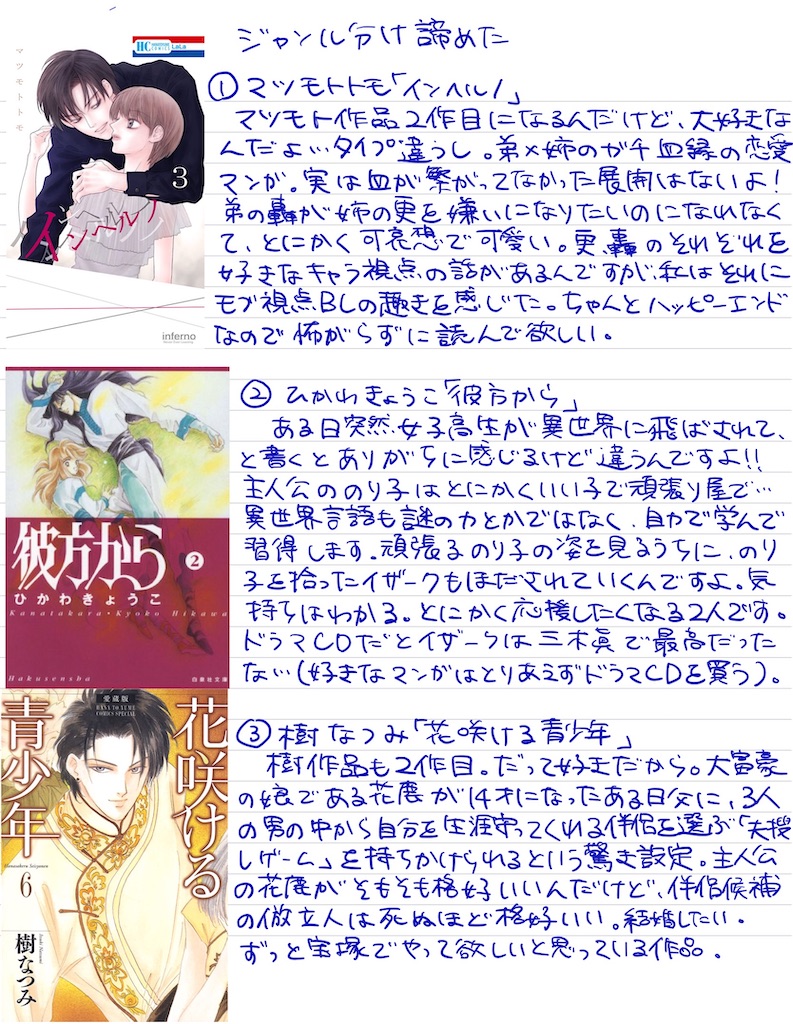 ジャンル分け諦めた
HC
LaLa
マツモトトモ
3
インヘルノ
inferno
①マツモトトモ「インヘルノ」
マツモト作品2作目になるんだけど、大好きな
んだよ…タイプ違うし。弟×姉のガチ血縁の恋愛
マンガ。実は血が繋がってなかった展開はないよ!
弟の轟が姉の更を嫌いになりたいのになれなく
て、とにかく可哀想で可愛い。更、轟のそれぞれを
好きなキャラ視点の話があるんですが、私はそれに
モブ視点BLの趣きを感じた。ちゃんとハッピーエンド
なので怖がらずに読んで欲しい。
彼方から
2
ひかわきょうこ
Kanatakara・Kyoko Hikawa
Hakusensha
白泉社文庫
②ひかわきょうこ「彼方から」
ある日突然、女子高生が異世界に飛ばされて、
と書くとありがちに感じるけど違うんですよ!!
主人公ののり子はとにかくいい子で頑張り屋で…
異世界言語も謎の力とかではなく、自力で学んで
習得します。頑張るのり子の姿を見るうちに、のり
子を拾ったイザークもほだされていくんですよ。気
持ちはわかる。とにかく応援したくなる2人です。
ドラマCDだとイザークは三木眞で最高だった
ない(好きなマンガはとりあえずドラマCDを買う)。
愛蔵版
HANA TO YUME
COMICS SPECIAL
花咲ける
青少年
6
樹なつみ
③樹なつみ「花咲ける青少年」
樹作品も2作目。だって好きだから。大富豪
の娘である花鹿が14才になったある日父に、3人
の男の中から自分を生涯守ってくれる伴侶を選ぶ「夫捜
しゲーム」を持ちかけられるという驚き設定。主人公
の花鹿がそもそも格好いいんだけど、伴侶候補
の倣立人は死ぬほど格好いい。結婚したい。
ずっと宝塚でやって欲しいと思っている作品。